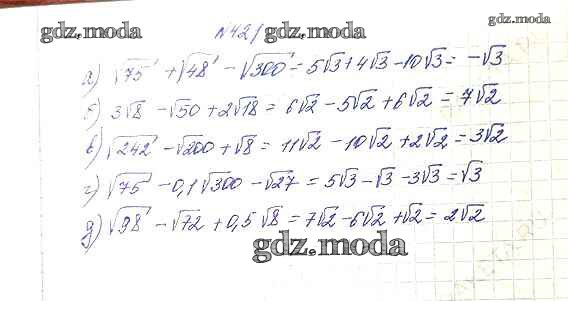 gdz.moda №421 gdz.moda gdz.moda
а) √75 + √48 - √300 = 5√3 + 4√3 - 10√3 = -√3
б) 3√8 - √50 + 2√18 = 6√2 - 5√2 + 6√2 = 7√2
в) √242 - √200 + √8 = 11√2 - 10√2 + 2√2 = 3√2
г) √75 - 0,1√300 - √27 = 5√3 - √3 - 3√3 = √3
д) √98 - √72 + 0,5√8 = 7√2 - 6√2 + √2 = 2√2
gdz.moda